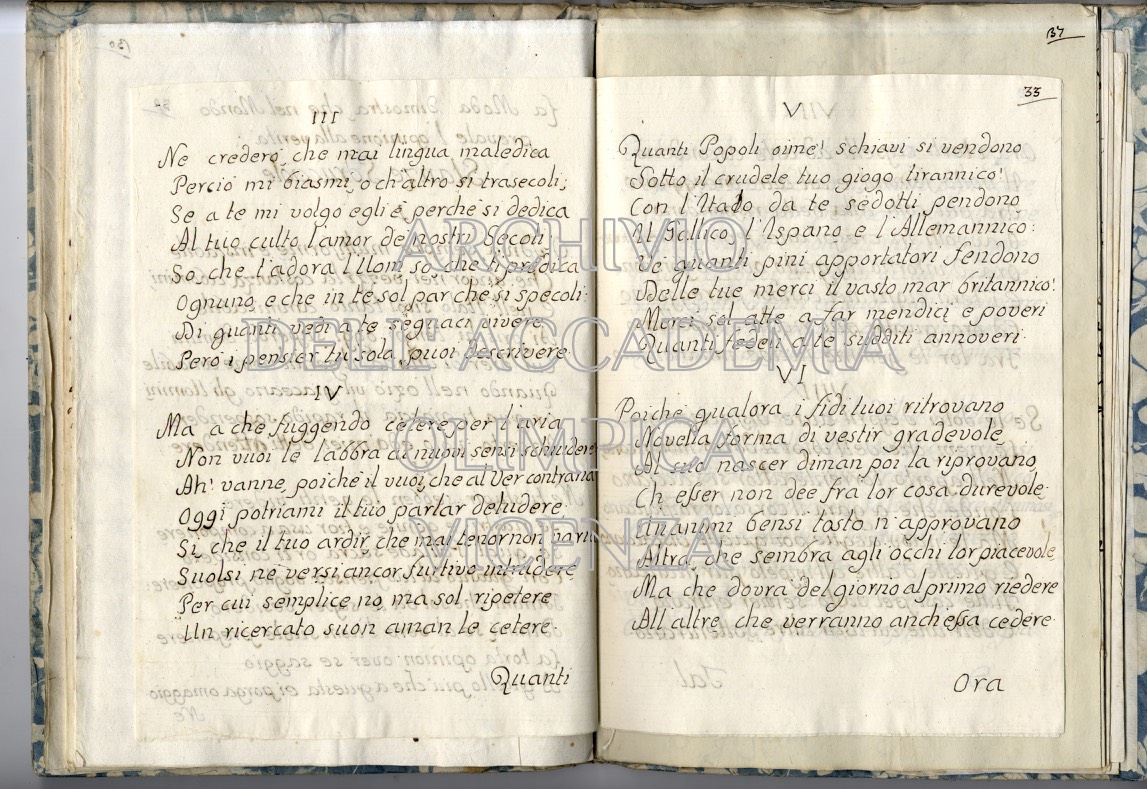 III
Ne credero, che mai lingua maledica
Perciò mi biasmi, o ch'altro si trasecoli;
Se a te mi volgo egli è perche si dedica
Al tuo culto l'amor de nostri Secoli
So che t'adora l'Uom, so che ti predica
Ognuno, e che in te sol par che si specoli:
Di quanti vedi a te seguaci vivere
Però i pensier tu sola puoi descrivere.
IV
Ma a che fuggendo cetere per l'aria
Non vuoi le labbra ai nuovi sensi schiudere
Ah! vanne, poiche il vuoi, che al Ver contraria
Oggi potriami il tuo parlar deludere.
Si, che il tuo ardir che mai tenor non varia
Suolsi ne versi ancor furtivo intrudere
Per cui semplice no, ma sol ripetere
Un ricercato suon aman le cetere.
Quanti
37
33
V
Quanti Popoli oime! schiavi si vendono
Sotto il crudele tuo giogo tirannico!
Con l'Italo da te sedotti pendono
Il Gallico, l'Ispano e l'Allemannico:
Ve quanti pini apportatori fendono
Delle tue merci il vasto mar britannico!
Merci sol atte a far mendici e poveri
Quanti fedeli a te sudditi annoveri.
VI
Poiche qualora i fidi tuoi ritrovano
Novella forma di vestir gradevole
Al suo nascer diman poi la riprovano,
Ch esser non dee fra lor cosa durevole.
Unanimi bensi tosto n'approvano
Altra, che sembra agli occhi lor piacevole
Ma che dovra del giorno al primo riedere
All altre che verranno anch essa cedere.
Ora
ARCHIVIO
DELL'ACCADEMIA
OLIMPICA
VICENZA